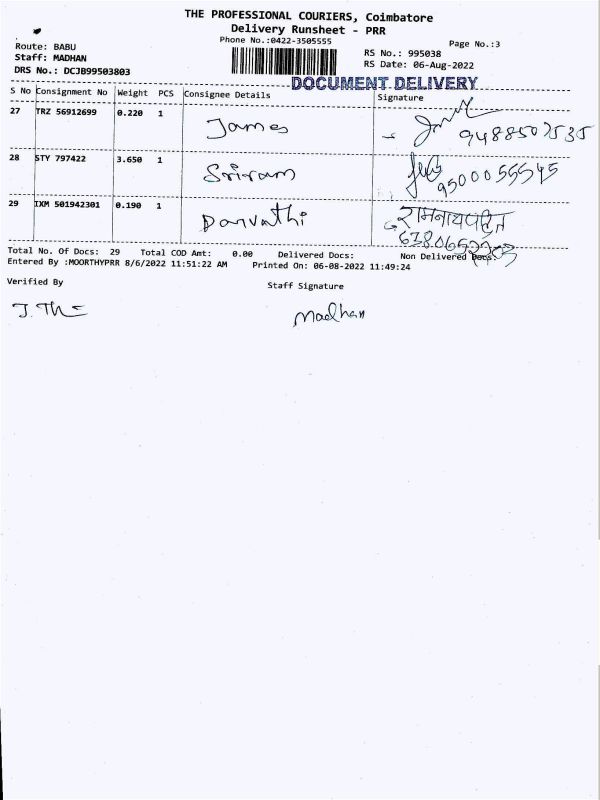 THE PROFESSIONAL COURIERS, Coimbatore
Delivery Runsheet - PRR
Phone No.:0422-3505555
Page No.:3
Route: BABU
Staff: MADHAN
DRS No.: DCJB99503803
RS No.: 995038
RS Date: 06-Aug-2022
DOCUMENT DELIVERY
S No Consignment No Weight PCS Consignee Details Signature
27 TRZ 56912699 0.220 1 James
9488507535
28 STY 797422 3.650 1 Sriram
9500055545
29 IXM 501942301 0.190 1 Parvathi
Total No. Of Docs: 29 Total COD Amt: 0.00 Delivered Docs: Non Delivered Docs:
Entered By :MOORTHYPRR 8/6/2022 11:51:22 AM Printed On: 06-08-2022 11:49:24
Verified By Staff Signature
Madhan